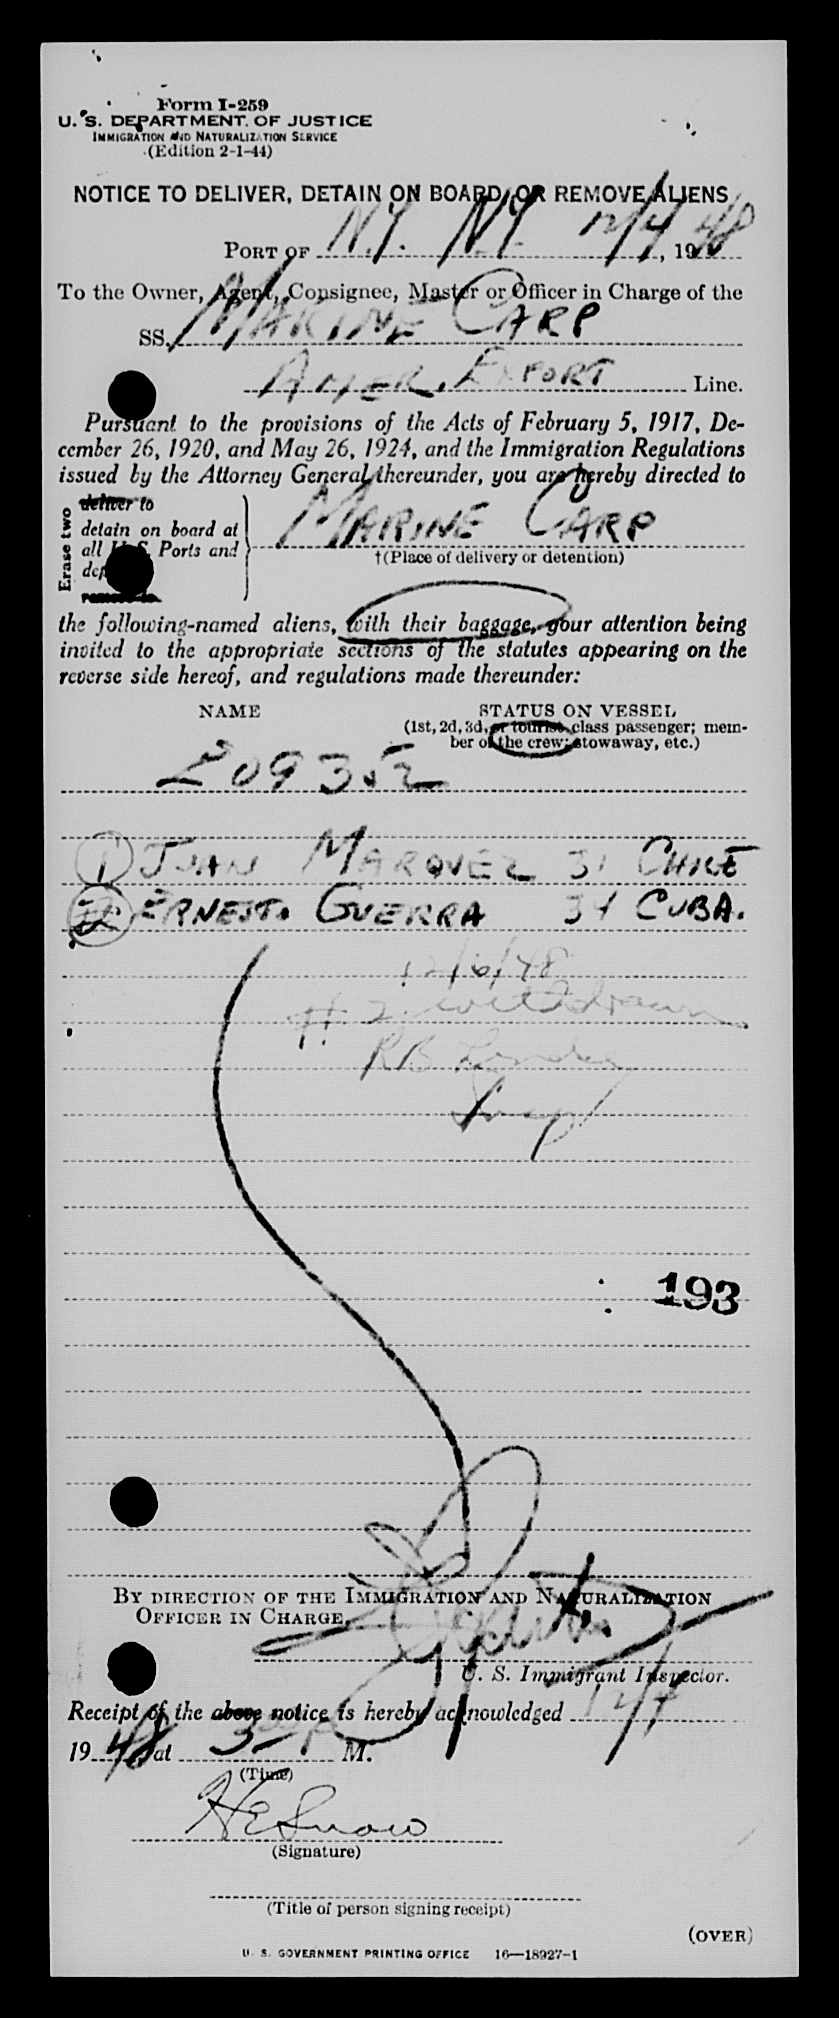 Form I-259
U. S. DEPARTMENT OF JUSTICE
IMMIGRATION AND NATURALIZATION SERVICE
(Edition 2-1-44)
NOTICE TO DELIVER, DETAIN ON BOARD, OR REMOVE ALIENS
PORT OF N.Y. N.Y. 12/4, 1948
To the Owner, Agent, Consignee, Master or Officer in Charge of the
SS. MARINE CARP
AMER. EXPORT Line.
Pursuant to the provisions of the Acts of February 5, 1917, De-
cember 26, 1920, and May 26, 1924, and the Immigration Regulations
issued by the Attorney General thereunder, you are hereby directed to
Erase two
deliver to
detain on board at
all U.S. Ports and
dep
remove to
MARINE CARP
†(Place of delivery or detention)
the following-named aliens, with their baggage, your attention being
invited to the appropriate sections of the statutes appearing on the
reverse side hereof, and regulations made thereunder:
NAME STATUS ON VESSEL
(1st, 2d, 3d, or tourist class passenger; mem-
ber of the crew; stowaway, etc.)
209352
1 JUAN MARQUEZ 31 CHILE
2 ERNESTO GUERRA 34 CUBA.
12/6/48
# 2 withdrawn
RB
Insp
193
BY DIRECTION OF THE IMMIGRATION AND NATURALIZATION
OFFICER IN CHARGE
U. S. Immigrant Inspector.
Receipt of the above notice is hereby acknowledged 12/4
1948 at 3 M.
(Time)
HE Snow
(Signature)
(Title of person signing receipt)
(OVER)
U. S. GOVERNMENT PRINTING OFFICE 16—18927-1